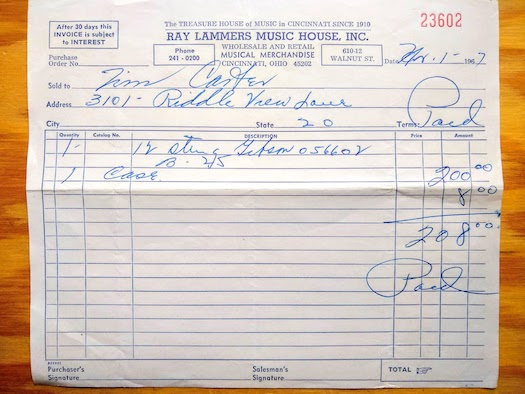 After 30 days this
INVOICE is subject
to INTEREST
The TREASURE HOUSE of MUSIC in CINCINNATI SINCE 1919
23602
RAY LAMMERS MUSIC HOUSE, INC.
Phone
241 - 0200
WHOLESALE AND RETAIL
MUSICAL MERCHANDISE
CINCINNATI, OHIO 45202
610-12
WALNUT ST.
Purchase
Order No.
Date 1- 1967
Sold to Tim Carter
Address 3101- Riddle View Lane
City State 20 Terms: Paid
Quantity Catalog No. DESCRIPTION Price Amount
1- 12 String Gibson 056602
B. 2/5
1 Case 200 00
8 00
208 00
Paid
Purchaser's
Signature
Salesman's
Signature
TOTAL ☞